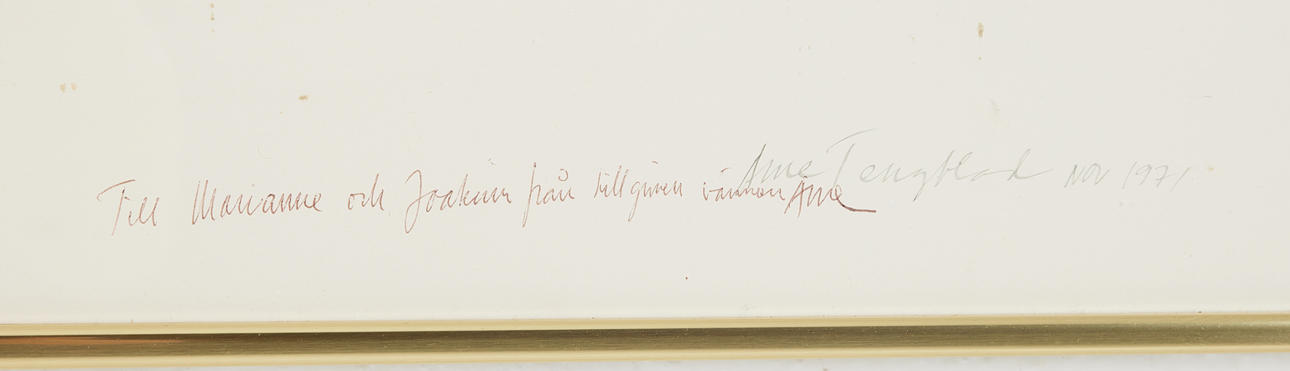 Till Marianne och Joakim från tillgiven vännen Arne
Arne Tengblad NOV 1971